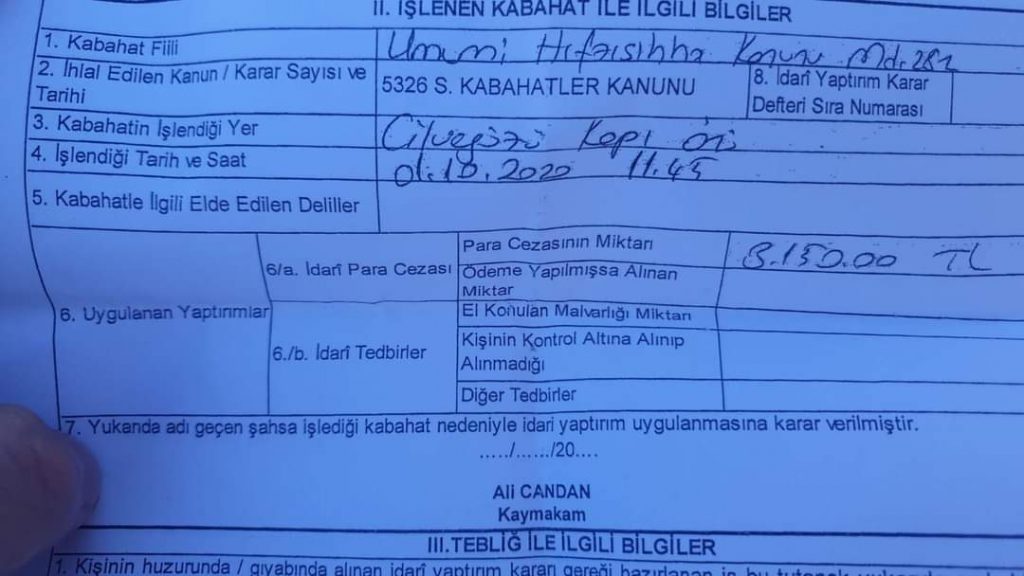 II. İŞLENEN KABAHAT İLE İLGİLİ BİLGİLER
1. Kabahat Fiili
Umumi Hıfzısıhha Kanunu Md. 282
2. İhlal Edilen Kanun / Karar Sayısı ve
Tarihi
5326 S. KABAHATLER KANUNU
8. İdarî Yaptırım Karar
Defteri Sıra Numarası
3. Kabahatin İşlendiği Yer
Cilvegözü Kapı Önü
4. İşlendiği Tarih ve Saat
01.10.2020 11.45
5. Kabahatle İlgili Elde Edilen Deliller
6. Uygulanan Yaptırımlar
6/a. İdarî Para Cezası
Para Cezasının Miktarı
3.150.00 TL
Ödeme Yapılmışsa Alınan
Miktar
6./b. İdarî Tedbirler
El Konulan Malvarlığı Miktarı
Kişinin Kontrol Altına Alınıp
Alınmadığı
Diğer Tedbirler
7. Yukarıda adı geçen şahsa işlediği kabahat nedeniyle idari yaptırım uygulanmasına karar verilmiştir.
...../....../20....
Ali CANDAN
Kaymakam
III.TEBLİĞ İLE İLGİLİ BİLGİLER
1. Kişinin huzurunda / gıyabında alınan idarî yaptırım kararı gereği hazırlanan iş bu